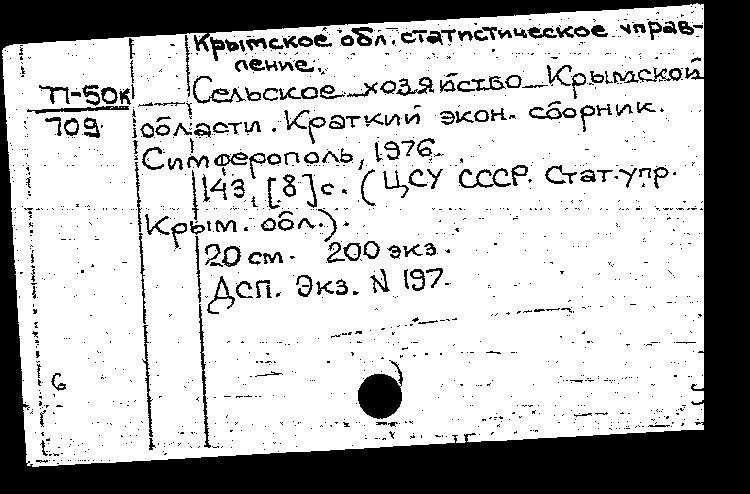 Крымское обл. статистическое управ-
ление.
П-50к
709
Сельское хозяйство Крымской
области. Краткий экон. сборник.
Симферополь, 1976.
143, [8] с. (ЦСУ СССР. Стат. упр.
Крым. обл.).
20 см. 200 экз.
ДСП. Экз. N 197.
6